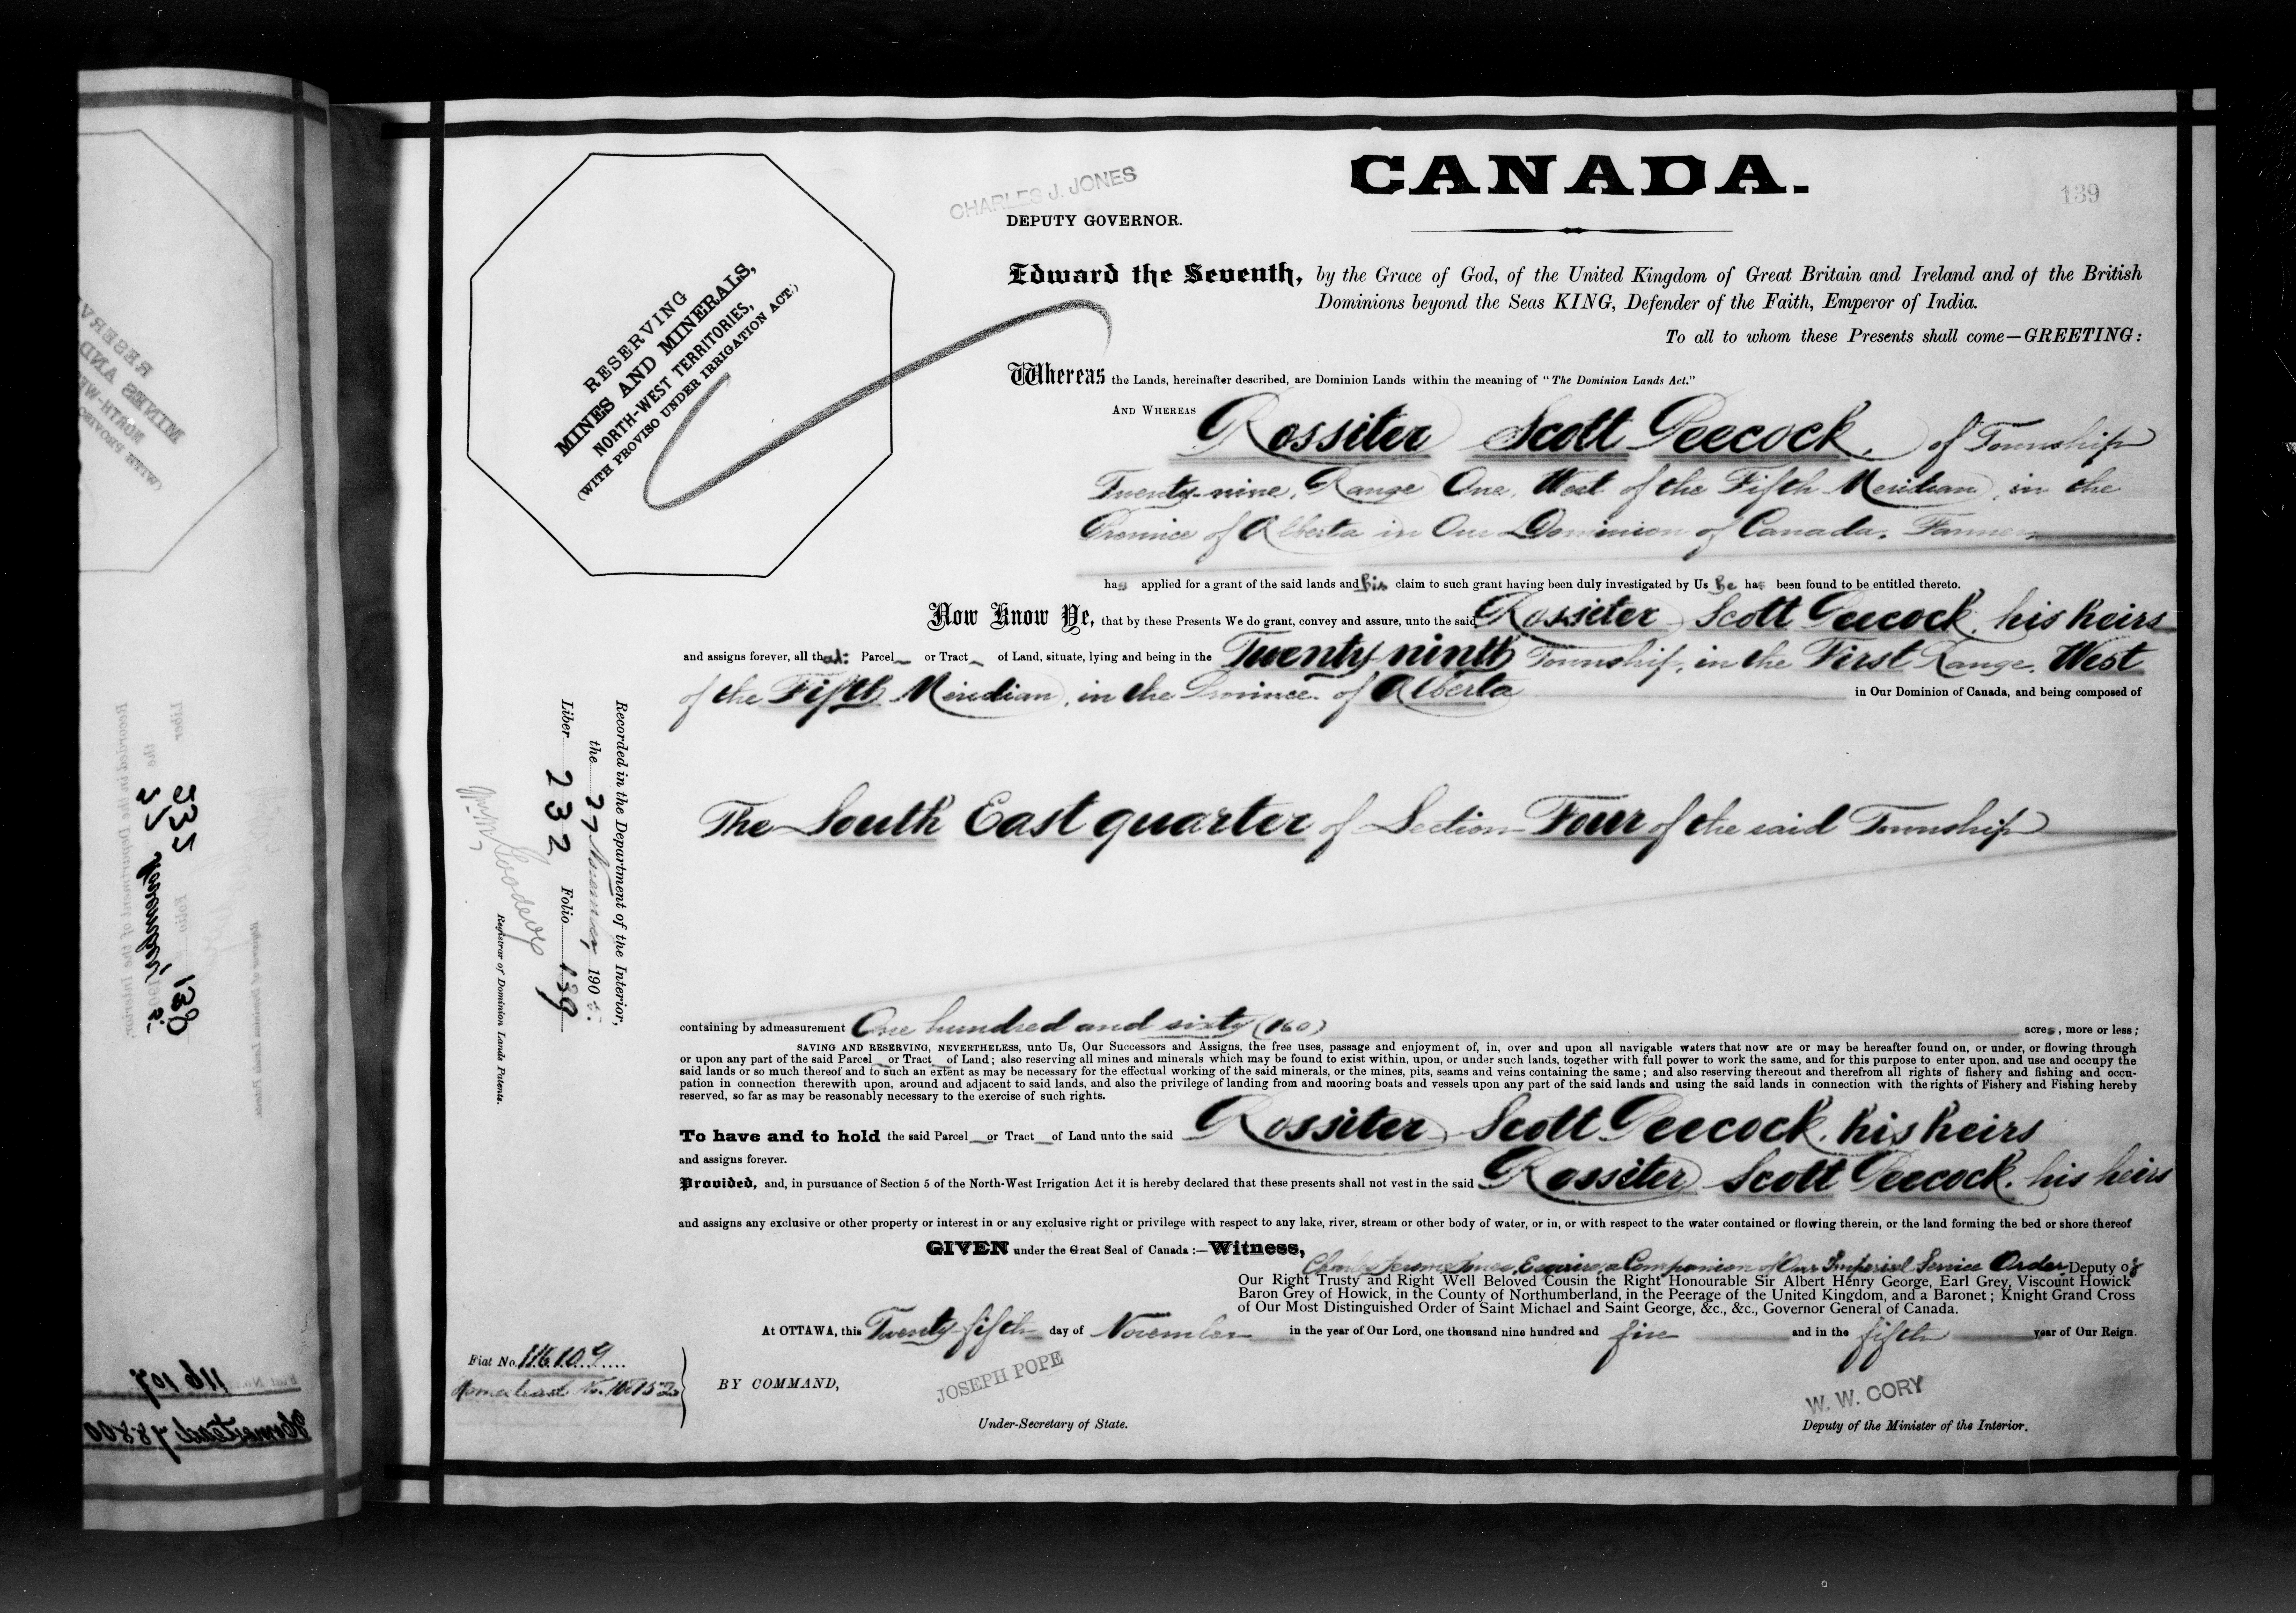 CANADA.
139
CHARLES J. JONES
DEPUTY GOVERNOR.
RESERVING
MINES AND MINERALS,
NORTH-WEST TERRITORIES,
(WITH PROVISO UNDER IRRIGATION ACT.)
Edward the Seventh, by the Grace of God, of the United Kingdom of Great Britain and Ireland and of the British
Dominions beyond the Seas KING, Defender of the Faith, Emperor of India.
To all to whom these Presents shall come—GREETING:
Whereas the Lands, hereinafter described, are Dominion Lands within the meaning of "The Dominion Lands Act."
AND WHEREAS Rossiter Scott Peecock, of Township
Twenty-nine, Range One, West of the Fifth Meridian, in the
Province of Alberta in Our Dominion of Canada, Farmer
has applied for a grant of the said lands and his claim to such grant having been duly investigated by Us he has been found to be entitled thereto.
Now Know Ye, that by these Presents We do grant, convey and assure, unto the said Rossiter Scott Peecock, his heirs
and assigns forever, all that Parcel or Tract of Land, situate, lying and being in the Twenty-ninth Township, in the First Range, West
of the Fifth Meridian, in the Province of Alberta in Our Dominion of Canada, and being composed of
The South East quarter of Section Four of the said Township
Recorded in the Department of the Interior,
the 27 November 1905.
Liber 232 Folio 139
Registrar of Dominion Lands Patents.
containing by admeasurement One hundred and sixty (160) acres, more or less;
SAVING AND RESERVING, NEVERTHELESS, unto Us, Our Successors and Assigns, the free uses, passage and enjoyment of, in, over and upon all navigable waters that now are or may be hereafter found on, or under, or flowing through
or upon any part of the said Parcel or Tract of Land; also reserving all mines and minerals which may be found to exist within, upon, or under such lands, together with full power to work the same, and for this purpose to enter upon, and use and occupy the
said lands or so much thereof and to such an extent as may be necessary for the effectual working of the said minerals, or the mines, pits, seams and veins containing the same; and also reserving thereout and therefrom all rights of fishery and fishing and occu-
pation in connection therewith upon, around and adjacent to said lands, and also the privilege of landing from and mooring boats and vessels upon any part of the said lands and using the said lands in connection with the rights of Fishery and Fishing hereby
reserved, so far as may be reasonably necessary to the exercise of such rights.
To have and to hold the said Parcel or Tract of Land unto the said Rossiter Scott Peecock, his heirs
and assigns forever.
Provided, and, in pursuance of Section 5 of the North-West Irrigation Act it is hereby declared that these presents shall not vest in the said Rossiter Scott Peecock, his heirs
and assigns any exclusive or other property or interest in or any exclusive right or privilege with respect to any lake, river, stream or other body of water, or in, or with respect to the water contained or flowing therein, or the land forming the bed or shore thereof
GIVEN under the Great Seal of Canada:—Witness,
Charles Jerome Jones, Esquire, a Companion of Our Imperial Service Order, Deputy of
Our Right Trusty and Right Well Beloved Cousin the Right Honourable Sir Albert Henry George, Earl Grey, Viscount Howick
Baron Grey of Howick, in the County of Northumberland, in the Peerage of the United Kingdom, and a Baronet; Knight Grand Cross
of Our Most Distinguished Order of Saint Michael and Saint George, &c., &c., Governor General of Canada.
At OTTAWA, this Twenty-fifth day of November in the year of Our Lord, one thousand nine hundred and five and in the fifth year of Our Reign.
Fiat No. 116109
Homestead No.
BY COMMAND,
JOSEPH POPE
Under-Secretary of State.
W. W. CORY
Deputy of the Minister of the Interior.